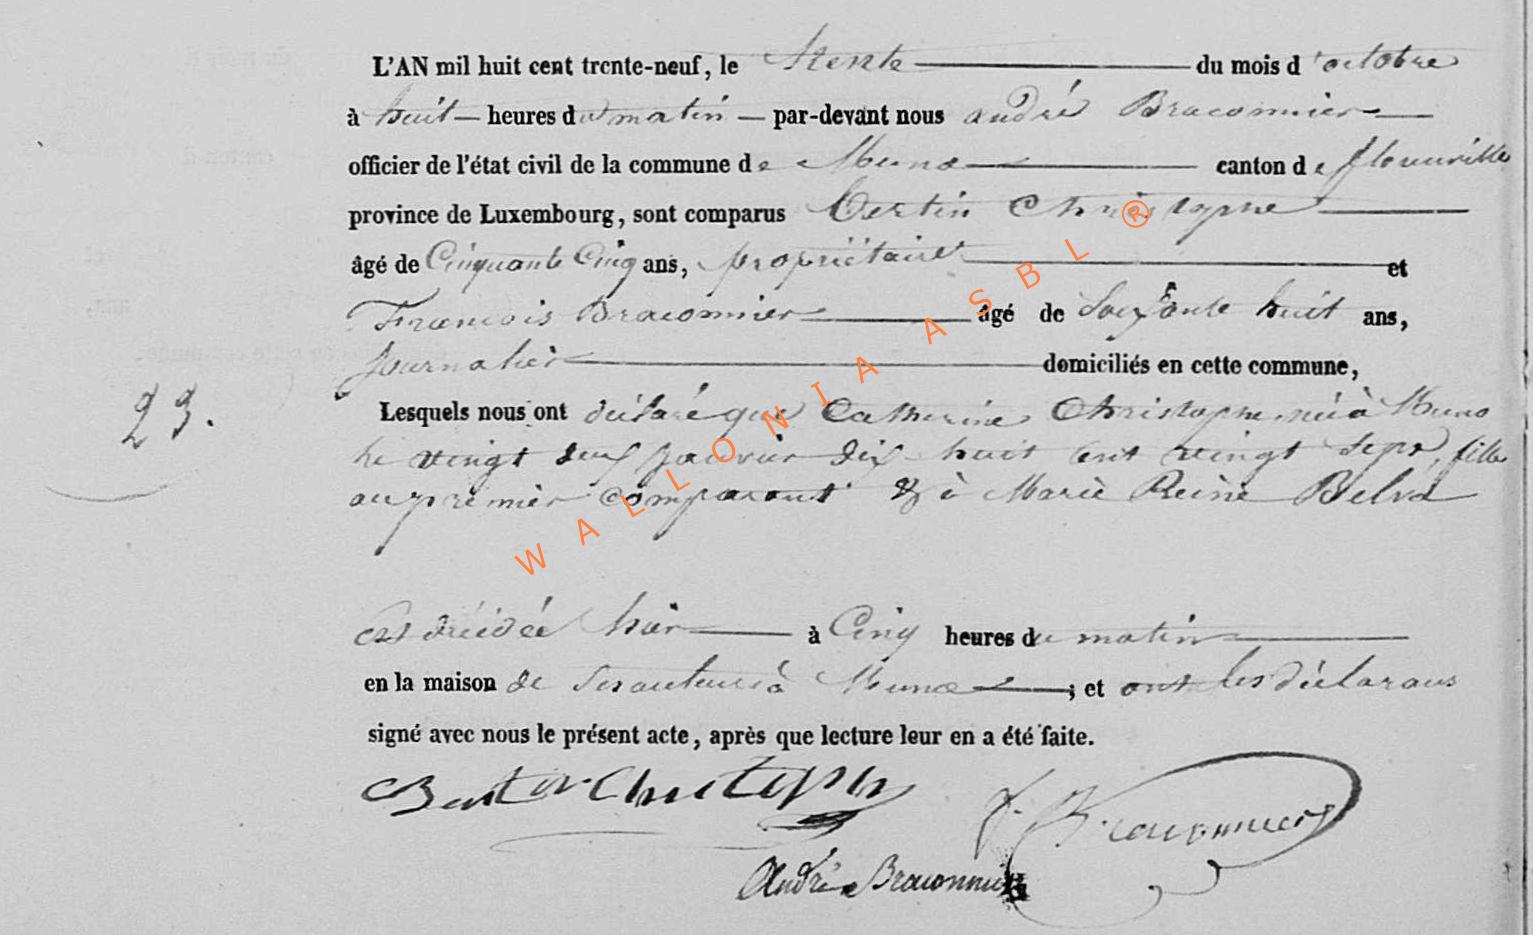 L'AN mil huit cent trente-neuf, le trente du mois d'octobre
à huit heures du matin par-devant nous andré Braconnier
officier de l'état civil de la commune de Muno canton de florenville
province de Luxembourg, sont comparus Bertin Christophe
âgé de Cinquante Cinq ans, propriétaire et
François Braconnier âgé de Soixante huit ans,
Journalier domiciliés en cette commune,
23.
Lesquels nous ont déclaré que Catherine Christophe, née à Muno
le vingt deux janvier dix huit cent vingt sept, fille
au premier comparant & à Marie Reine Belva
est décédée hier à Cinq heures du matin
en la maison de à Muno ; et ont les déclarans
signé avec nous le présent acte, après que lecture leur en a été faite.
Christophe
f. Braconnier
André Braconnier
WALLONIA ASBL ®